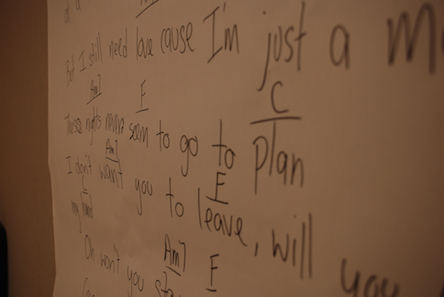 But I still need love cause I'm just a
Am7 F C
These nights never seem to go to plan
Am7 F
I don't want you to leave, will you
my hand
Am7 F
Oh won't you